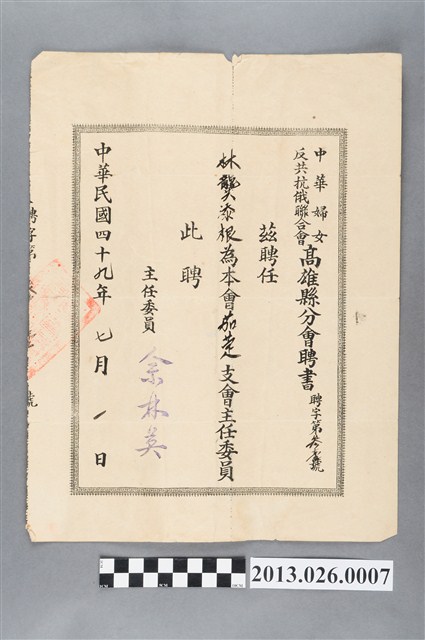 中華婦女
反共抗俄聯合會高雄縣分會聘書
聘字第叁號
茲聘任
林龔添根為本會茄萣支會主任委員
此聘
主任委員 余林英
中華民國四十九年七月一日
聘字第
號
2013.026.0007